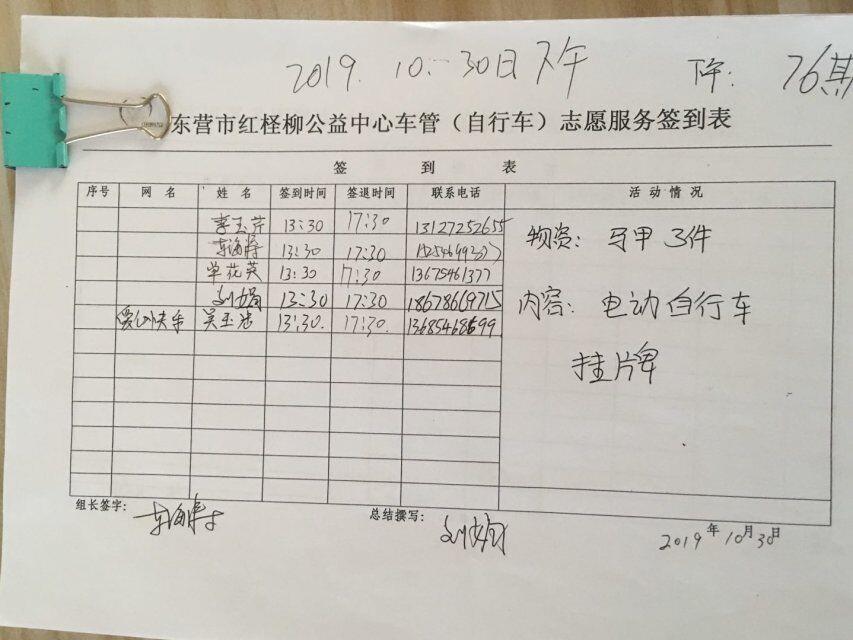 2019. 10. 30日下午 下午: 76期
东营市红柽柳公益中心车管（自行车）志愿服务签到表
签 到 表
序号 网 名 姓 名 签到时间 签退时间 联系电话 活 动 情 况
李玉芹 13:30 17:30 13127252655
13:30 17:30
单花英 13:30 17:30 13675461377
刘娟 13:30 17:30 18678669715
吴玉 13:30. 17:30. 13685468699
物资: 马甲 3件
内容: 电动自行车
挂牌
组长签字: 总结撰写: 刘娟 2019年10月30日